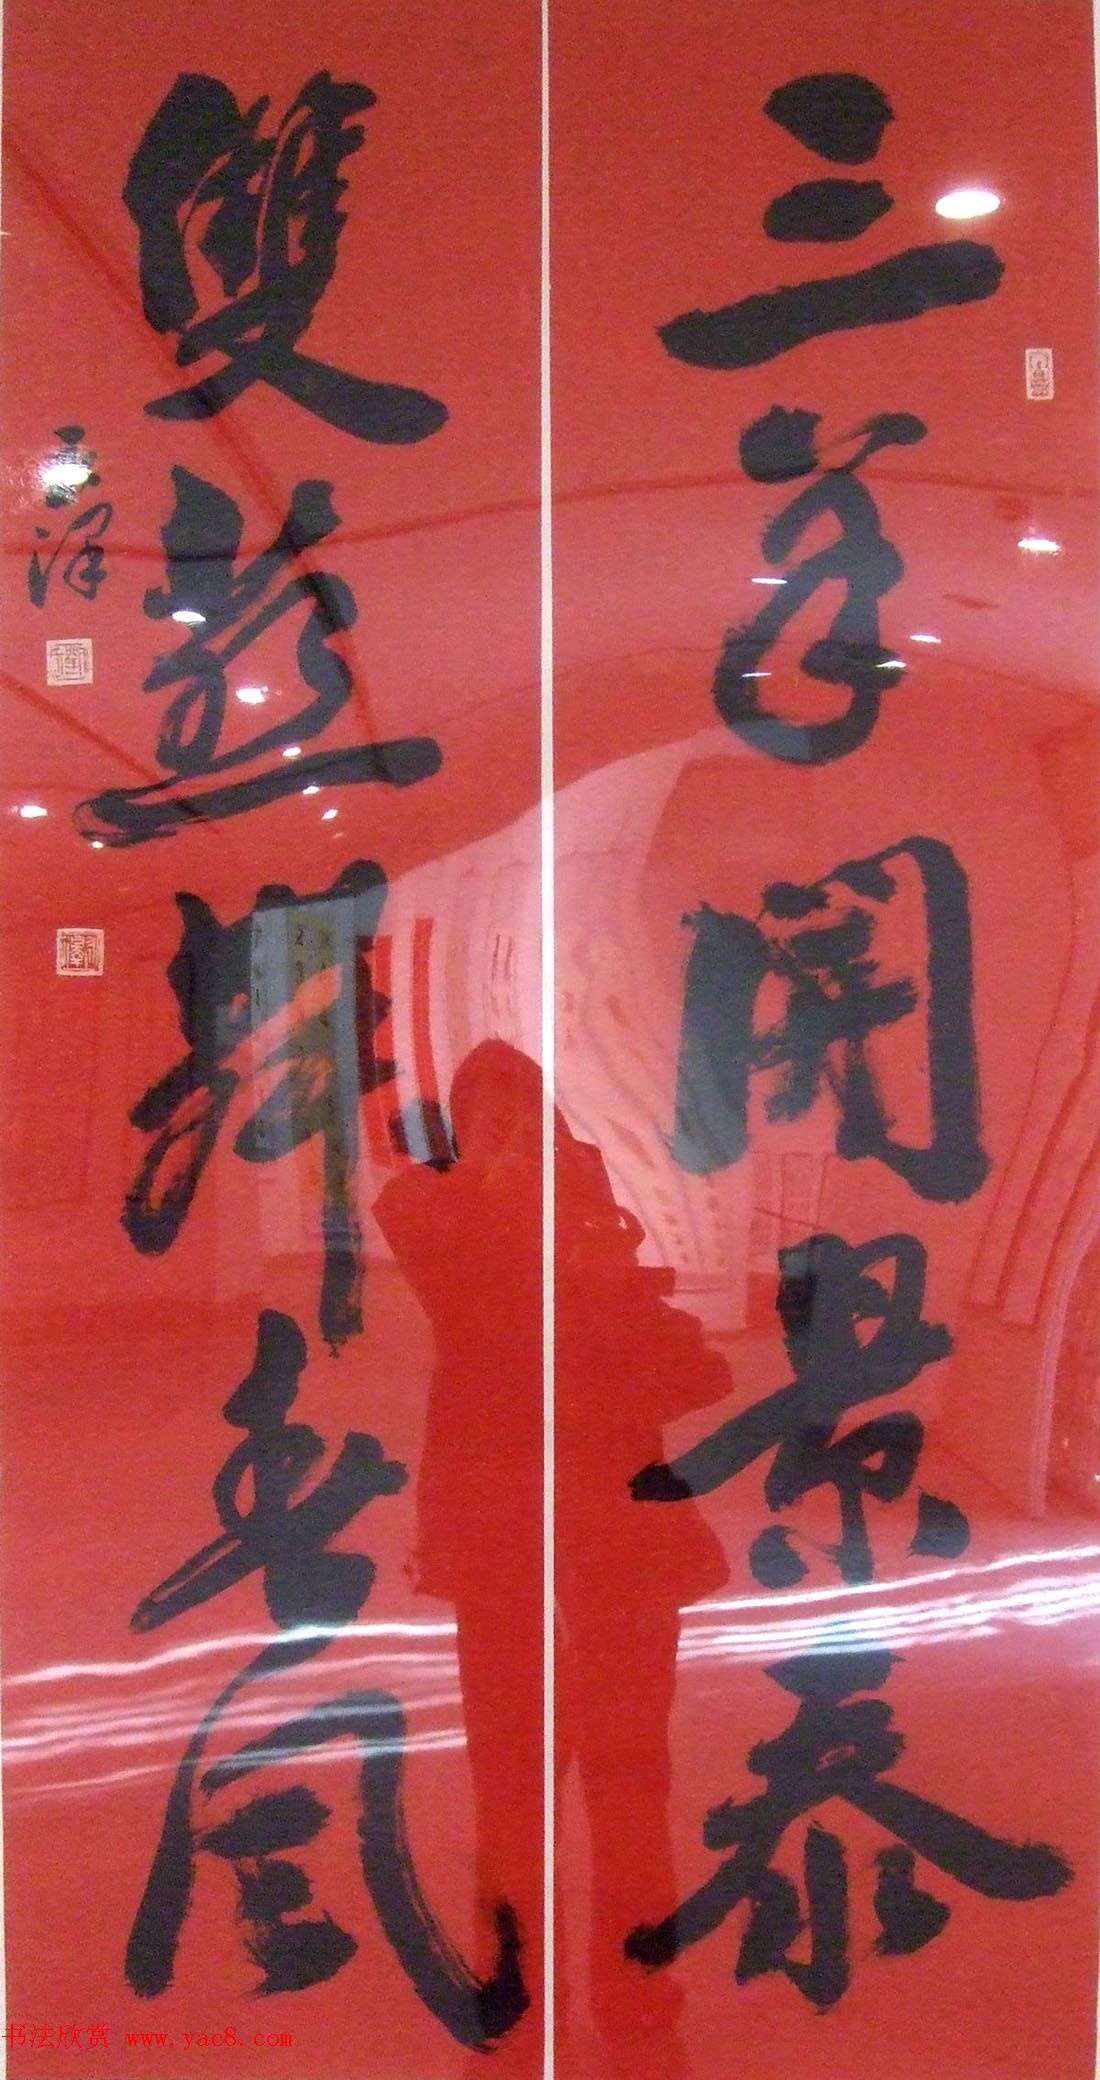 三羊開景泰
雙燕舞春風
书法欣赏 www.yac8.com